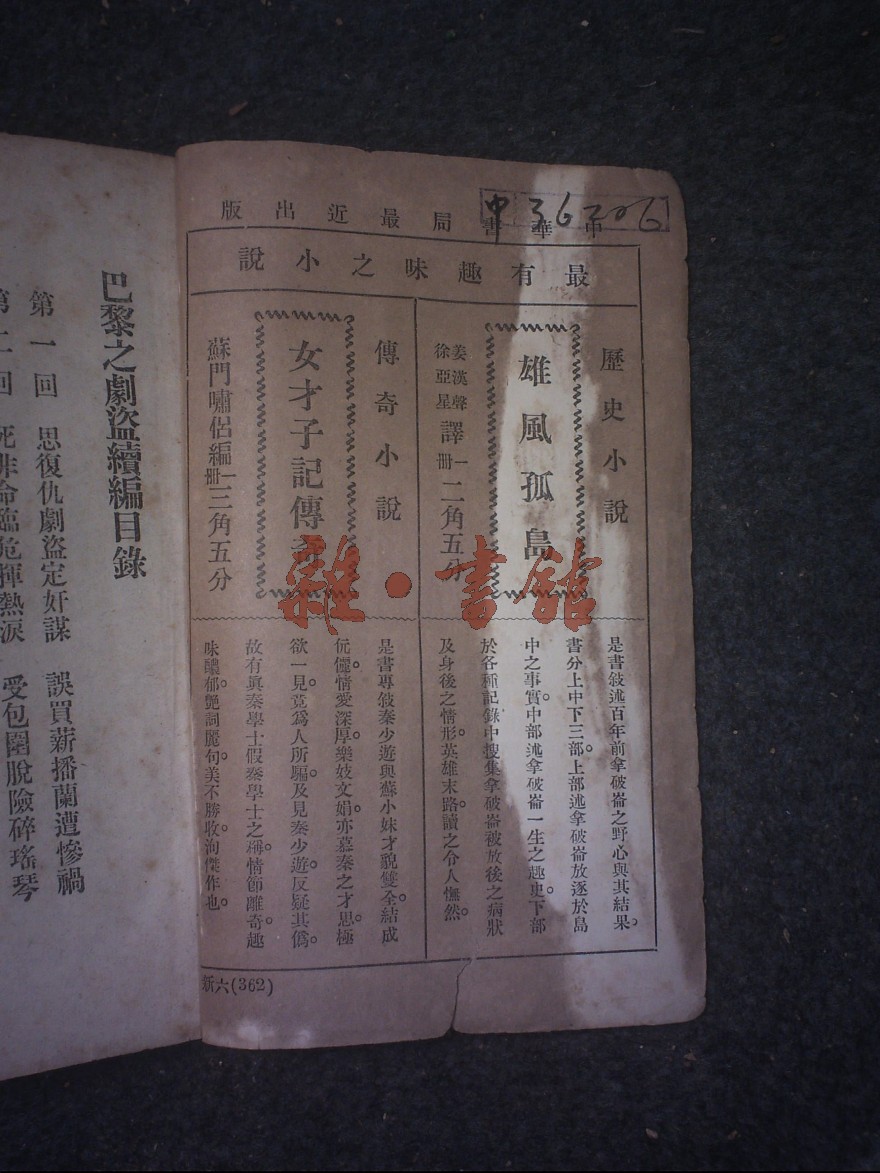 中36206
中華書局最近出版
最有趣味之小說
歷史小說
雄風孤島
姜漢聲
徐亞星
譯
一冊
二角五分
是書敍述百年前拿破崙之野心與其結果。
書分上中下三部。上部述拿破崙放逐於島
中之事實。中部述拿破崙一生之趣史。下部
於各種記錄中搜集拿破崙被放後之病狀
及身後之情形。英雄末路。讀之令人憮然。
傳奇小說
女才子記傳奇
蘇門嘯侶編
一冊
三角五分
是書專敍秦少遊與蘇小妹才貌雙全。結成
伉儷。情愛深厚。樂妓文娟。亦慕秦之才思。極
欲一見。竟爲人所騙。及見秦少遊。反疑其僞。
故有眞秦學士假秦學士之稱。情節離奇。趣
味醲郁。艷詞麗句。美不勝收。洵傑作也。
新六(362)
雜·書館
巴黎之劇盜續編目錄
第一回 思復仇劇盜定奸謀 誤買薪播蘭遭慘禍
第二回 死非命臨危揮熱淚 受包圍脫險碎瑤琴